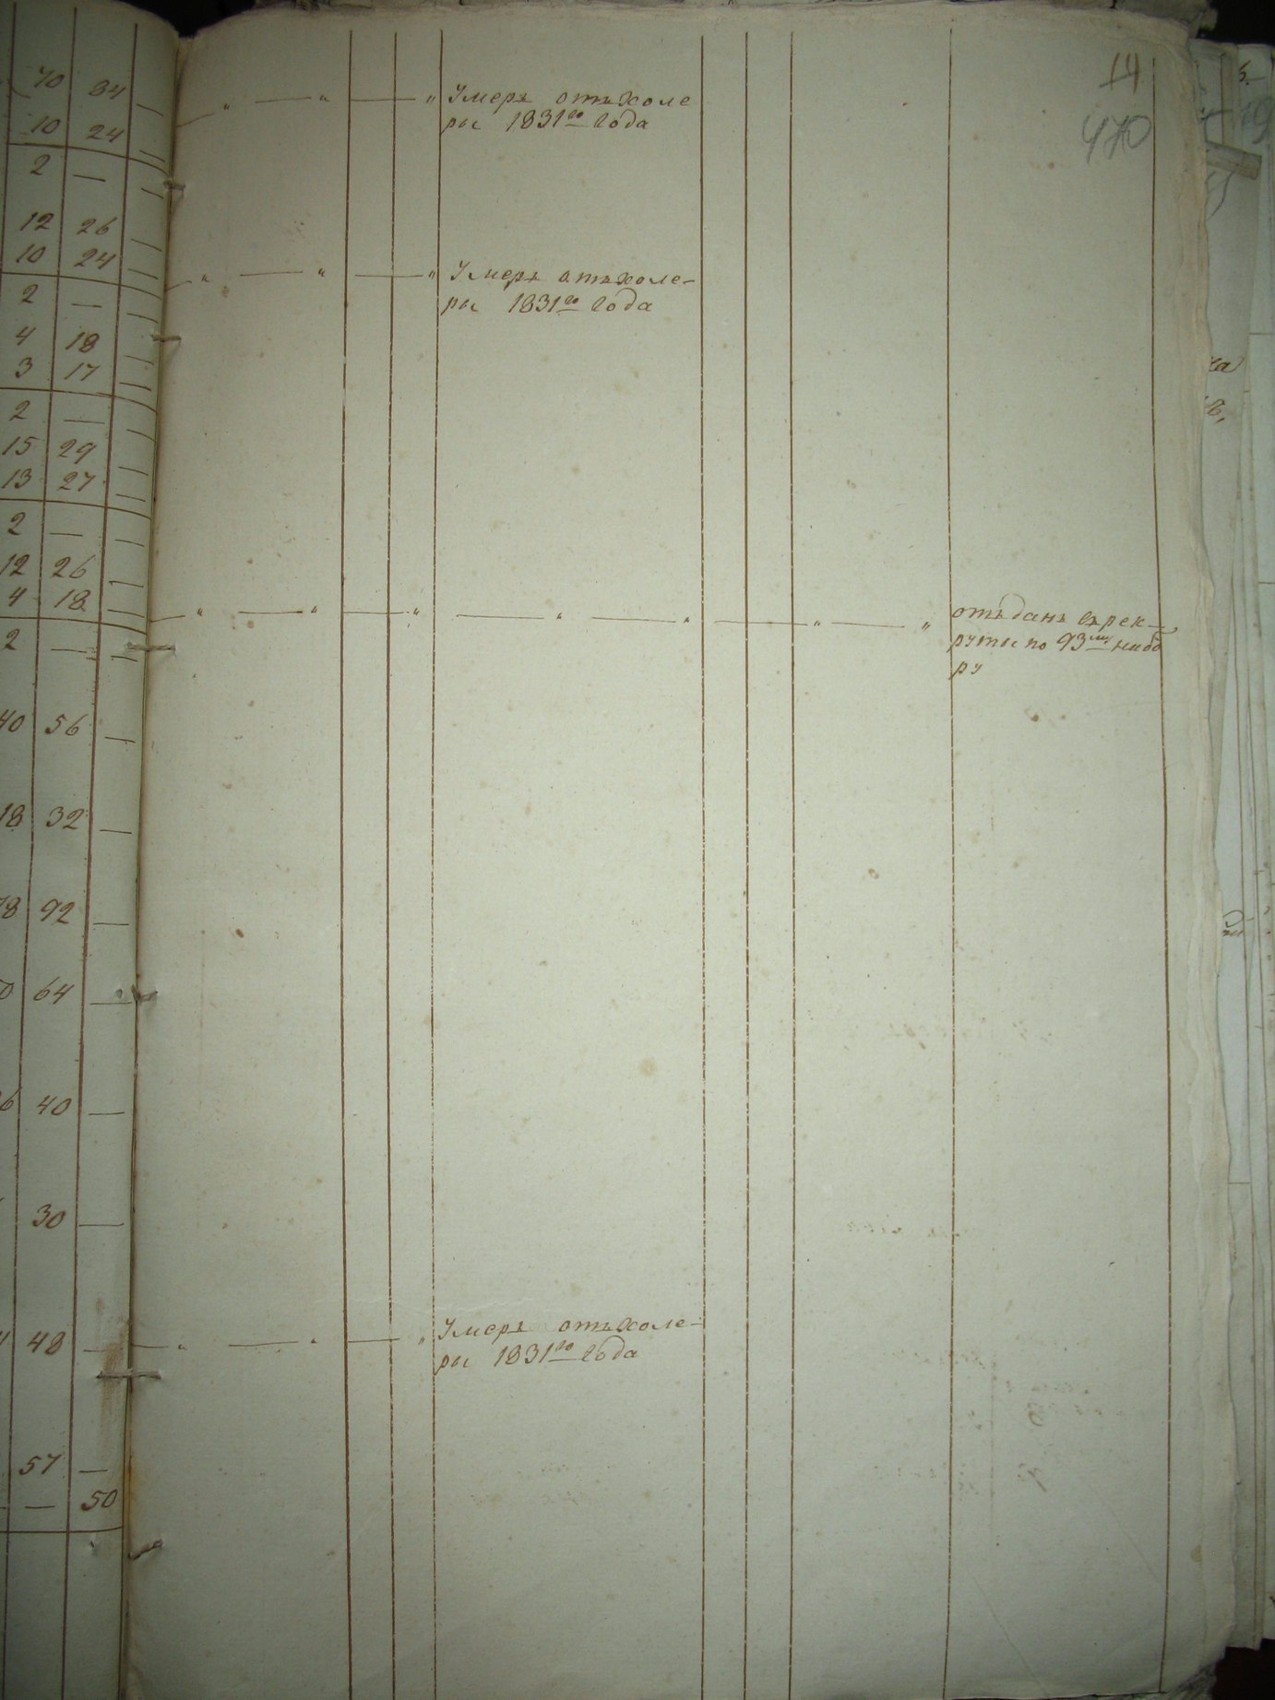 14
470
70 84 —
" — " — " Умеръ отъ Холе
ры 1831го Года
10 24 —
2 — —
12 26 —
10 24 —
" — " — " Умеръ отъ холе-
ры 1831го Года
2 — —
4 18 —
3 17 —
2 — —
15 29 —
13 27 —
2 — —
12 26 —
4 18 —
" — " — " — " — " — " — " отъданъ въ рек-
руты по 93му набо
ру
2 — —
40 56 —
18 32 —
78 92 —
64 —
40 —
30 —
48 —
" — " — " Умеръ отъ Холе-
ры 1831го Года
57 —
— 50